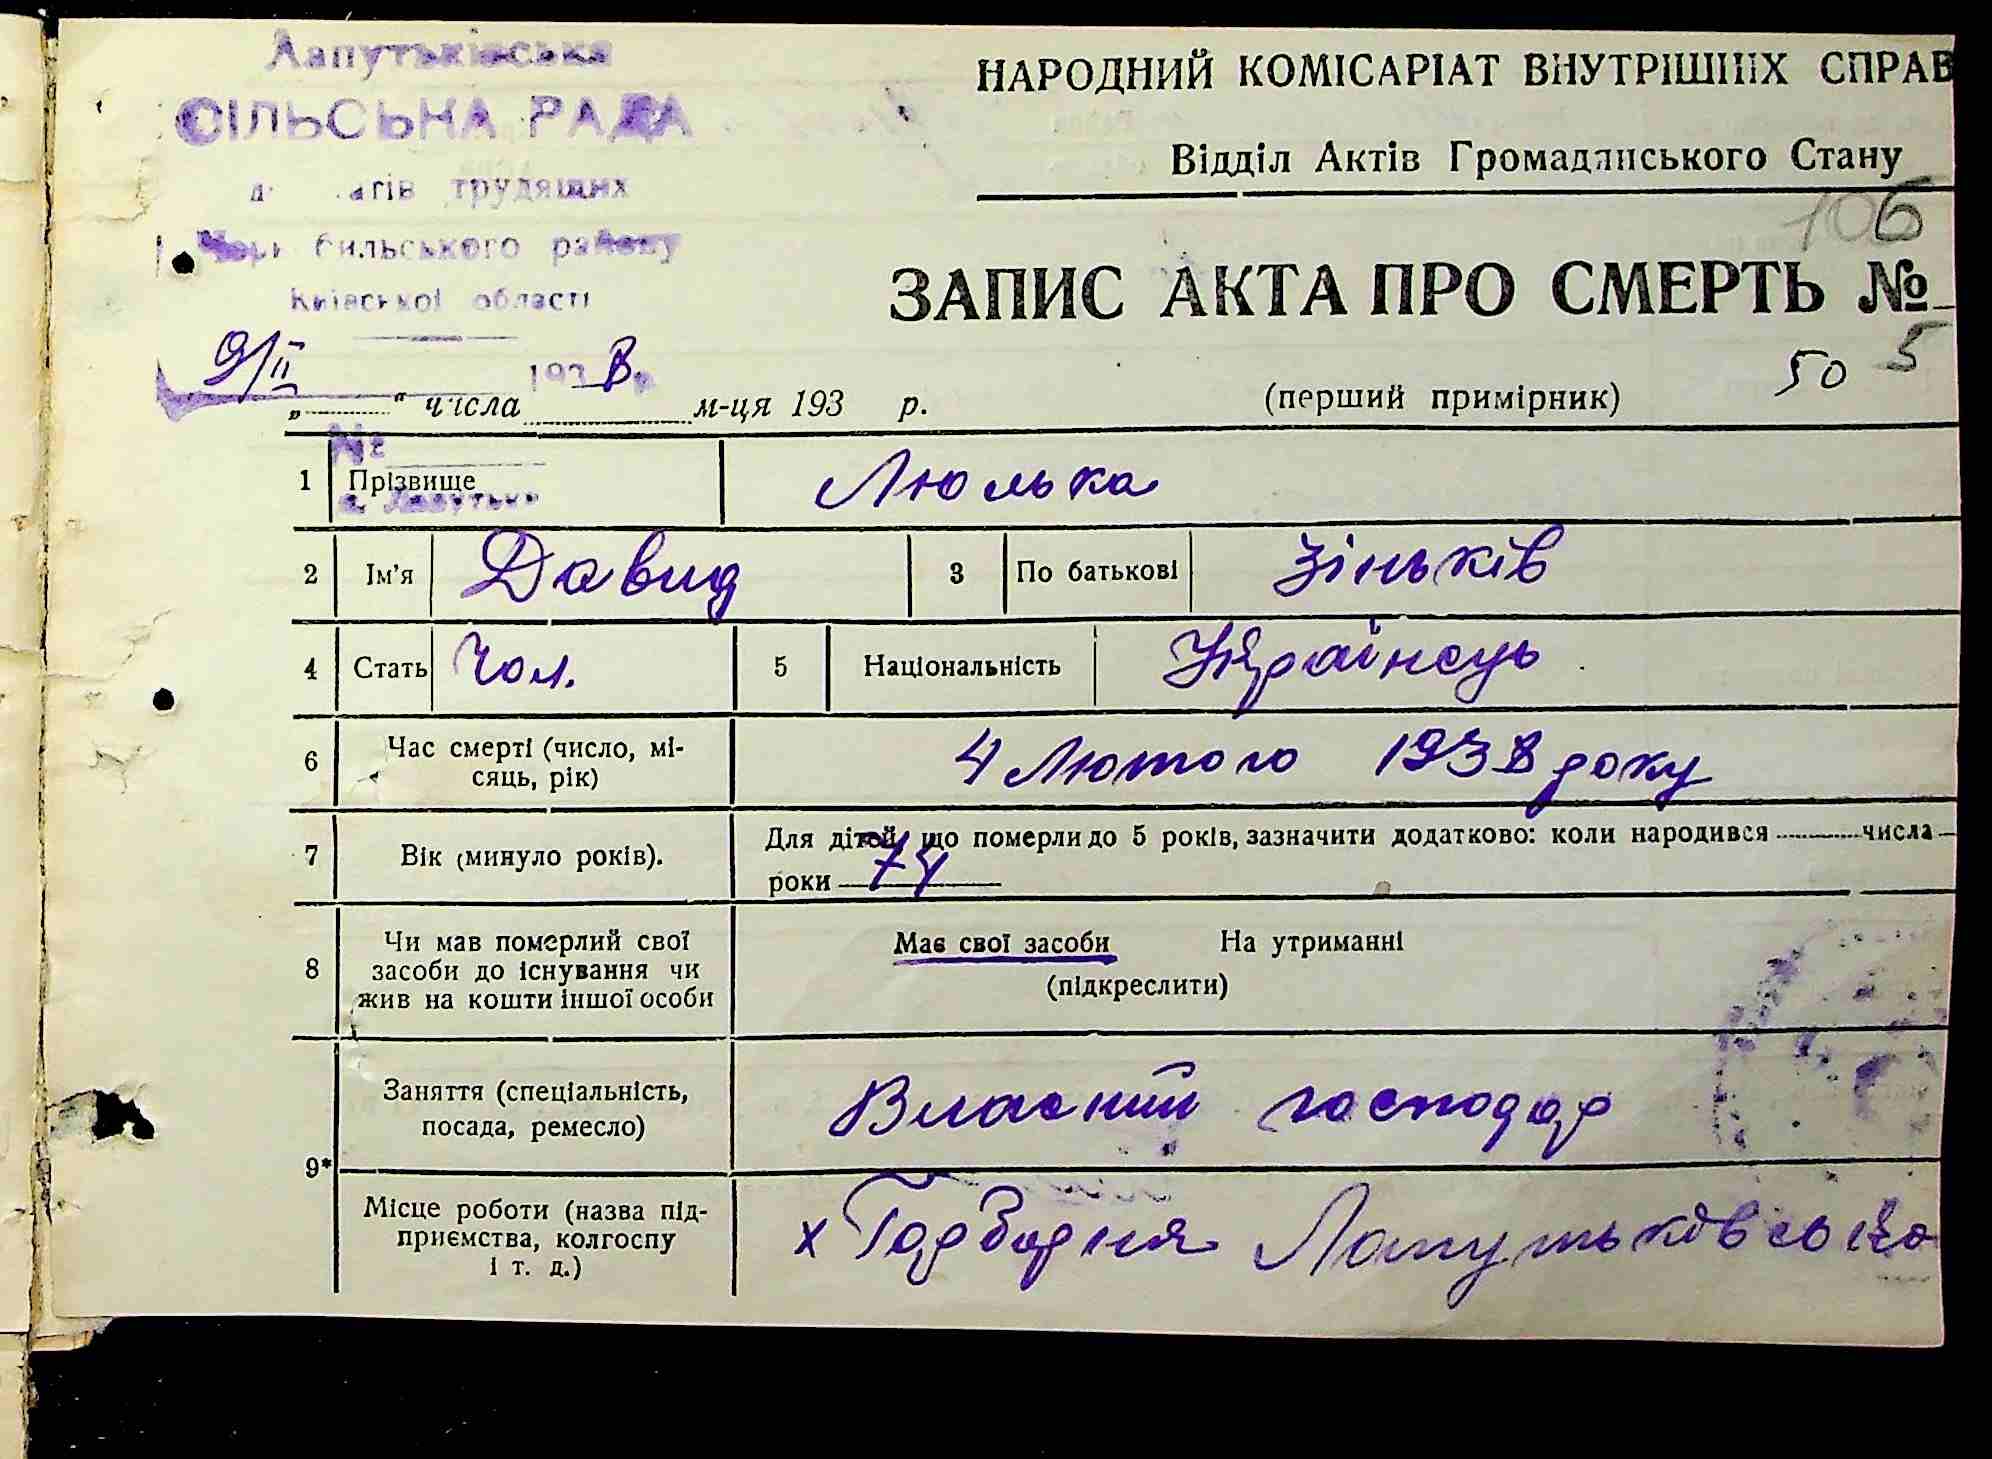 Лапутьківська
СІЛЬСЬКА РАДА
трудящих
Київської області
9/II 1938.
„ “ числа м-ця 193 р.
№
НАРОДНИЙ КОМІСАРІАТ ВНУТРІШНІХ СПРАВ
Відділ Актів Громадянського Стану
106
ЗАПИС АКТА ПРО СМЕРТЬ №
5
(перший примірник)
50
1 Прізвище Люлька
2 Ім’я Давид 3 По батькові Зіньків
4 Стать Чол. 5 Національність Українець
6 Час смерті (число, мі-
сяць, рік) 4 Лютого 1938 року
7 Вік (минуло років). Для дітей, що померли до 5 років, зазначити додатково: коли народився числа
роки 74
8 Чи мав померлий свої
засоби до існування чи
жив на кошти іншої особи
Має свої засоби На утриманні
(підкреслити)
9* Заняття (спеціальність,
посада, ремесло) Власний господар
Місце роботи (назва під-
приємства, колгоспу
і т. д.)
х